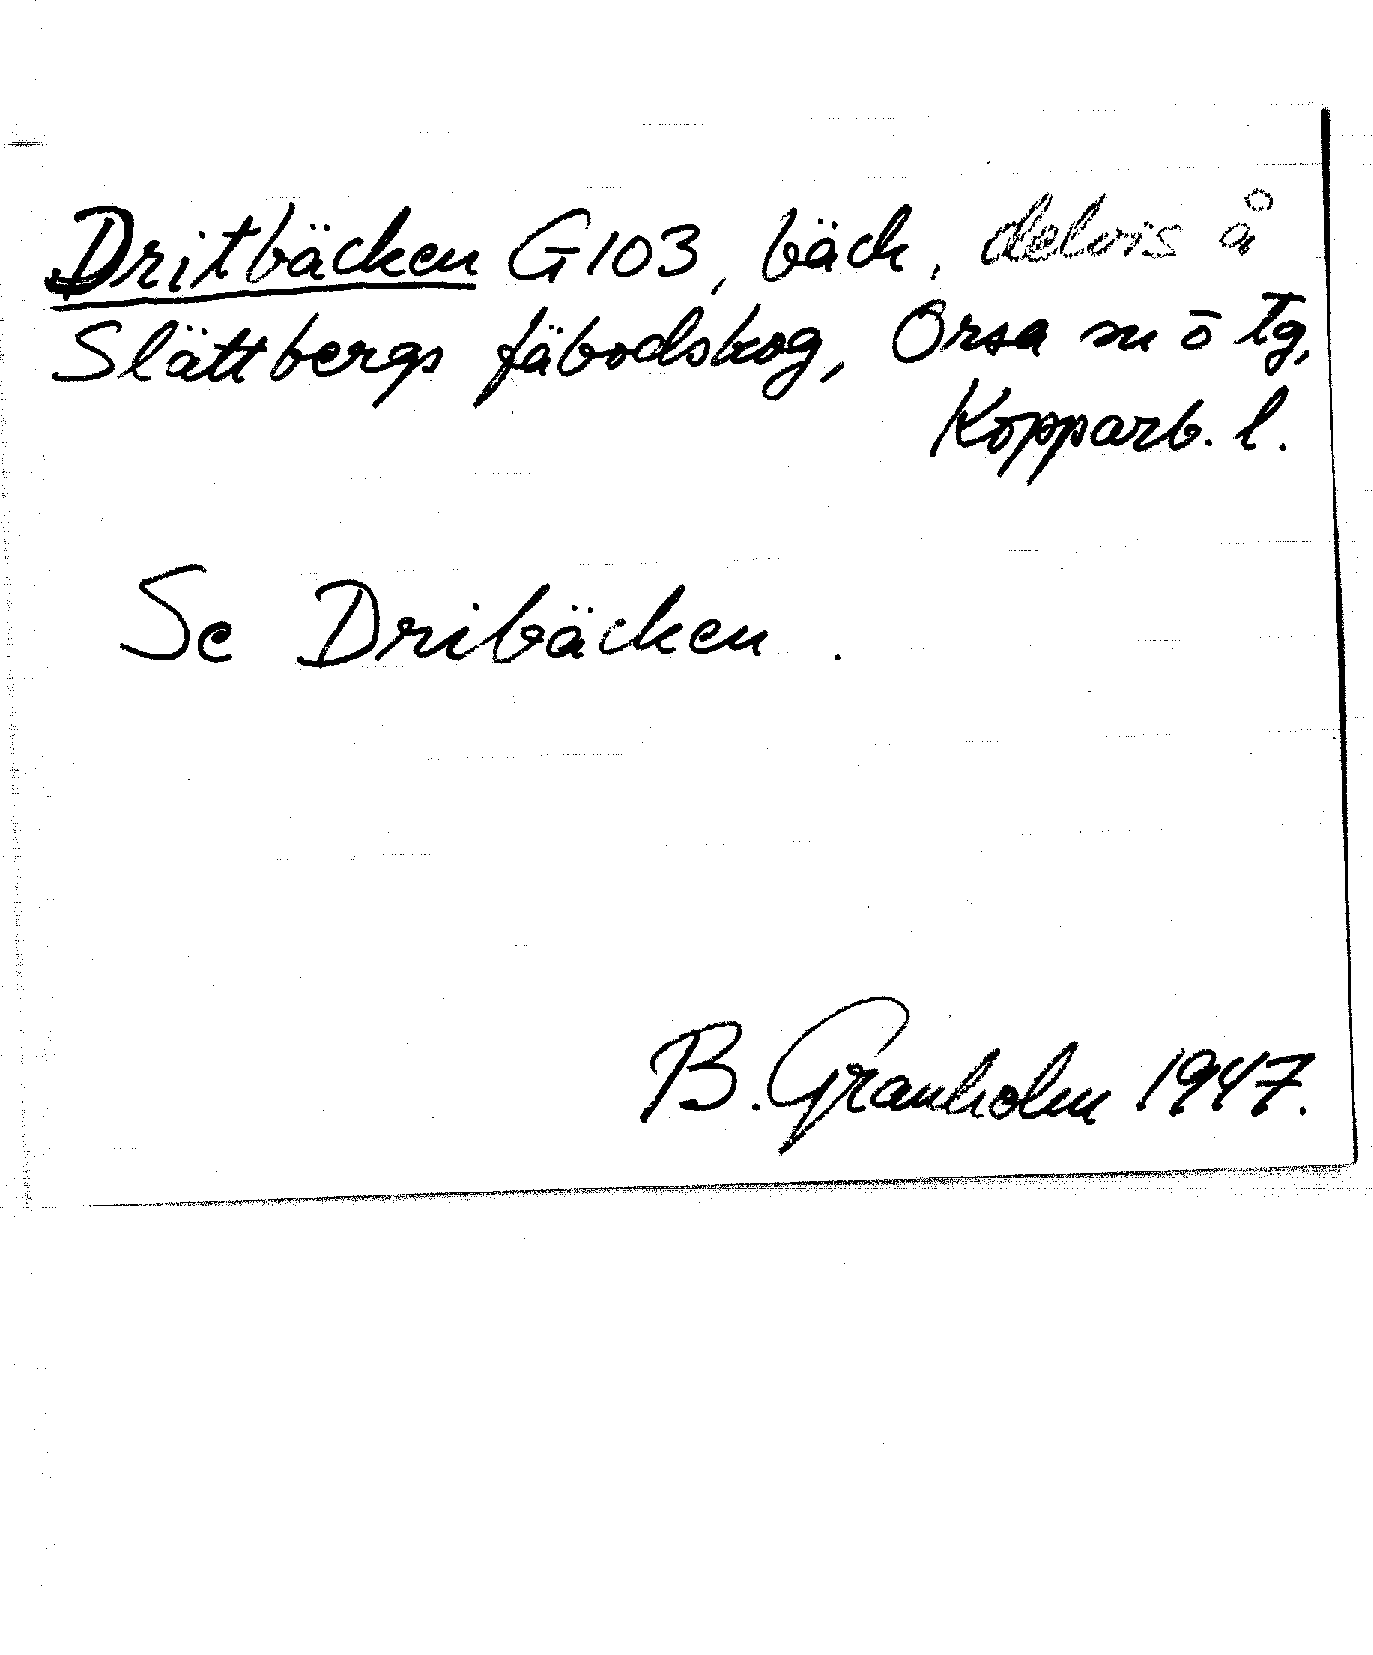 Dritbäcken G103, bäck, delvis å
Slättbergs fäbodskog, Orsa sn ö tg,
Kopparb. l.
Se Dribäcken.
B. Granholm 1947.